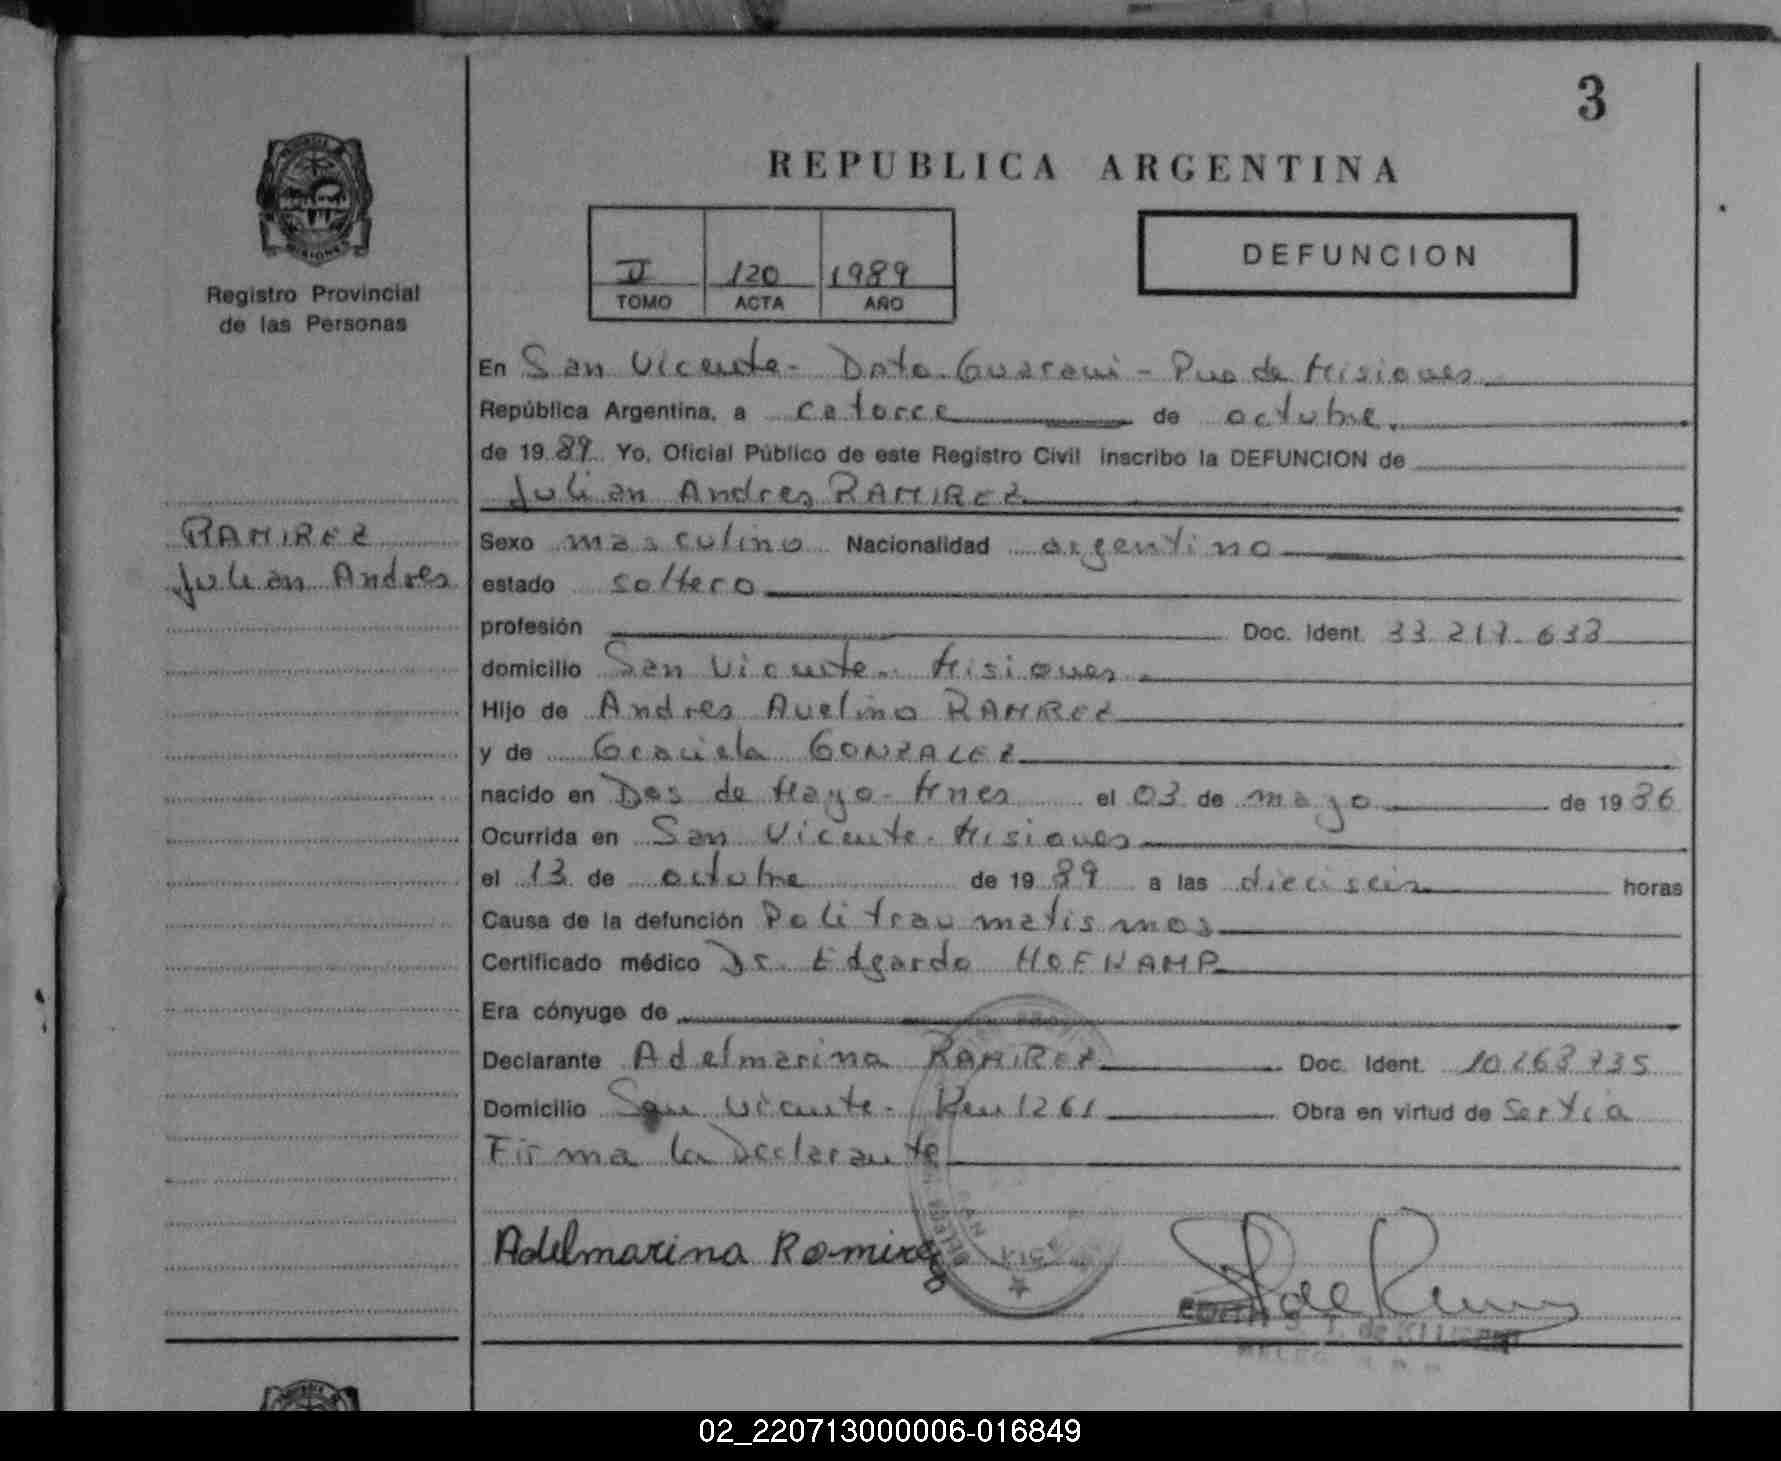 3
REPUBLICA ARGENTINA
II 120 1989
TOMO ACTA AÑO
DEFUNCION
Registro Provincial
de las Personas
RAMIREZ
Julian Andres
En San Vicente - Dpto. Guarani - Pcia de Misiones
República Argentina, a catorce de octubre.
de 1989 Yo, Oficial Público de este Registro Civil inscribo la DEFUNCION de
Julian Andres RAMIREZ
Sexo masculino Nacionalidad argentino
estado soltero
profesión Doc. Ident. 33.217.633
domicilio San Vicente - Misiones
Hijo de Andres Avelino RAMIREZ
y de Graciela GONZALEZ
nacido en Dos de Mayo - Mnes el 03 de mayo de 1986
Ocurrida en San Vicente - Misiones
el 13 de octubre de 1989 a las dieciseis horas
Causa de la defunción Politraumatismos
Certificado médico Dr. Edgardo
Era cónyuge de
Declarante Adelmarina RAMIREZ Doc. Ident. 10263735
Domicilio San Vicente - Km 1261 Obra en virtud de Ser tia
Firma la Declarante
Adelmarina Ramirez
02_220713000006-016849